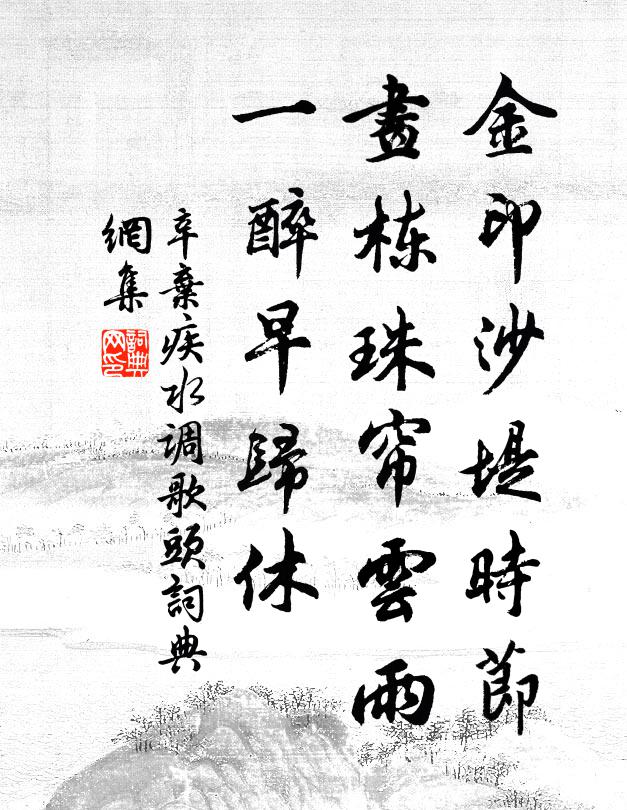 金印沙堤時節
畫棟珠帘雲雨
一醉早歸休
辛棄疾水调歌頭詞典
網集
詞典
网印